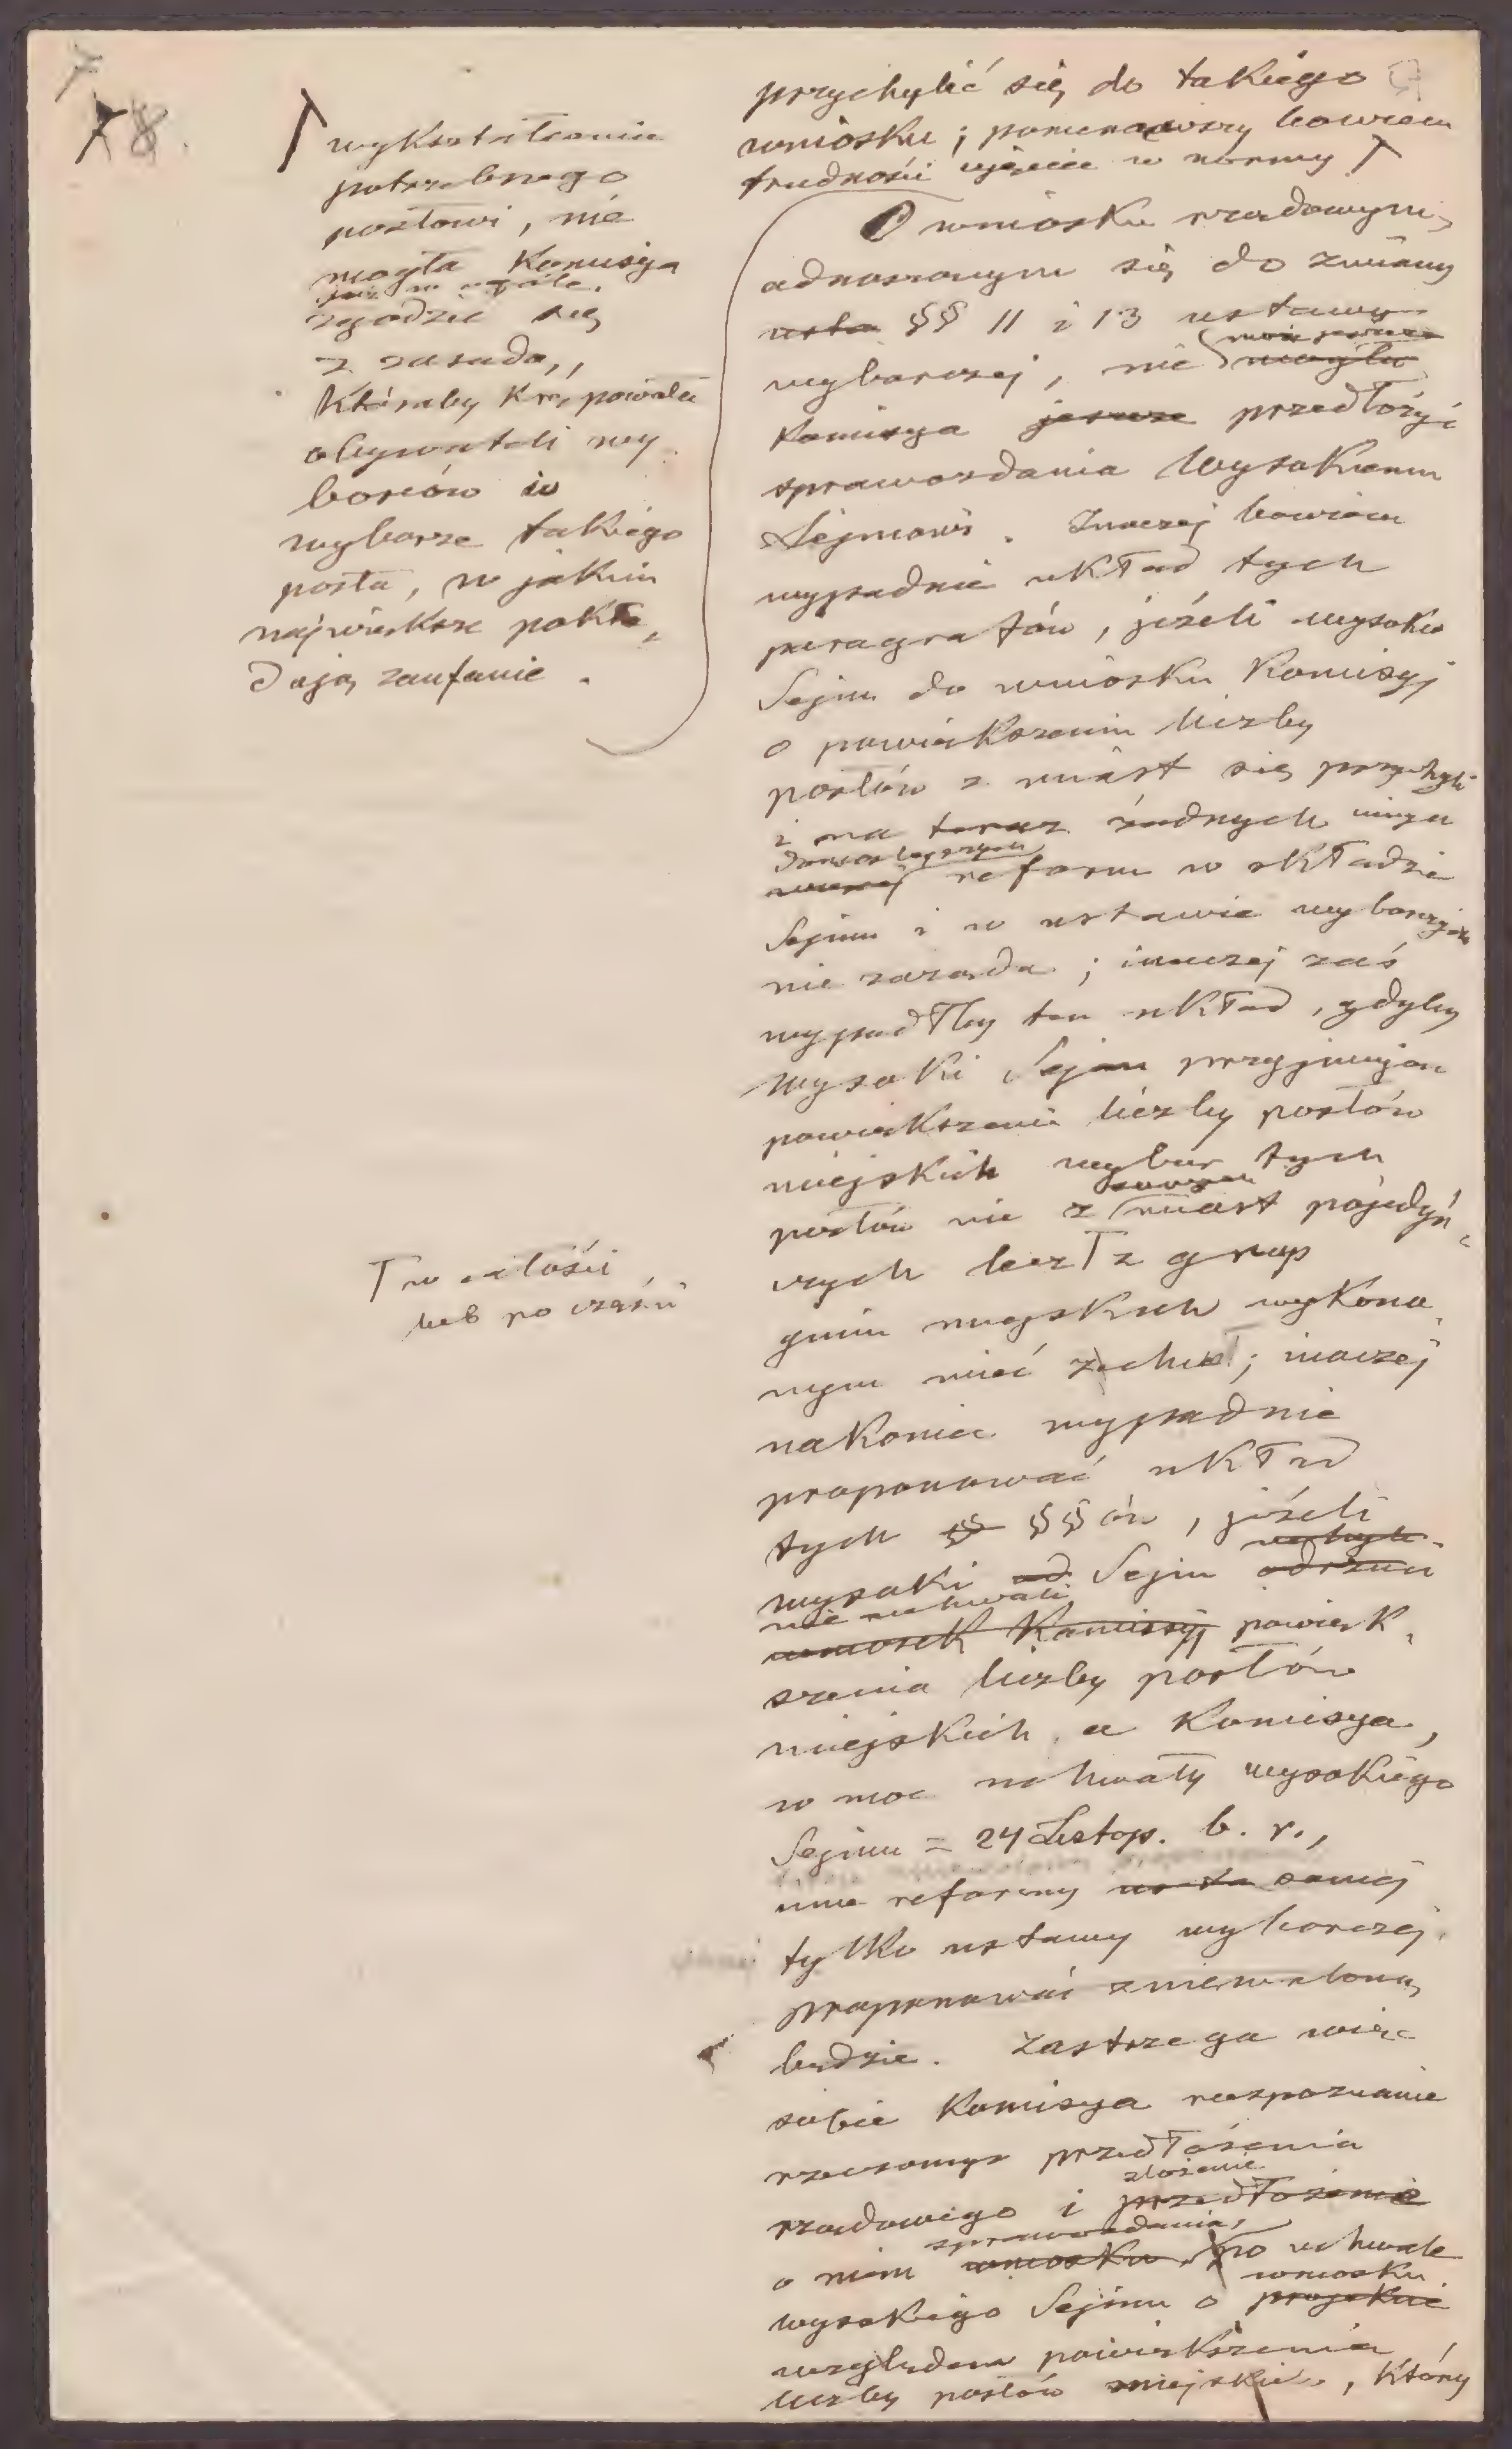 78.
wykształcenia
potrzebnego
posłowi, nie
mogła Komisya
już w ogóle
zgodzić się
z zasadą,
któraby krępowała
obywateli wy
borców w
wyborze takiego
posła, w jakim
największe pokła„
dają zaufanie.
przychylić się do takiego
wniosku; pominąwszy bowiem
trudności ujęcia w normy
O wniosku rządowym,
odnoszonym się do zmiany
usta §§ 11 i 13 ustawy
wyborczej, nie mogła
Komisya jeszcze przedłożyć
sprawozdania Wysokiemu
Sejmowi. Inaczej bowiem
wypadnie układ tych
paragrafów, jeżeli wysoki
Sejm do wniosku Komisyj
o powiększeniu liczby
posłów z miast się przychyli
i na teraz żadnych innych
donioślejszych
reform w składzie
Sejmu i w ustawie wyborczej
nie zarządza; inaczej zaś
wypadłby ten układ, gdyby
wysoki Sejm przyjmując
powiększenie liczby posłów
miejskich wybór tych
posłów nie z miast pojedyń„
czych lecz z grup
w całości
lub po części
gmin miejskich wykona„
nym mieć zechciał; inaczej
nakoniec wypadnie
proponować układ
tych §§ §§ów, jeżeli
uchyli
wysoki od Sejm odrzuci
nie uchwali
wniosek Komisyj powięk„
szenia liczby posłów
miejskich, a Komisya,
w moc uchwały wysokiego
Sejmu z 24 Listop. b. r.,
inne reformy samej
tylko ustawy wyborczej
proponować zniewoloną
będzie. Zastrzega więc
sobie Komisya rozpoznanie
rzeczonego przedłożenia
złożenie
rządowego i przedłożenie
sprawozdania,
o nim wniosku po uchwale
wniosku
wysokiego Sejmu o projekcie
względem powiększenia
liczby posłów miejskich, który